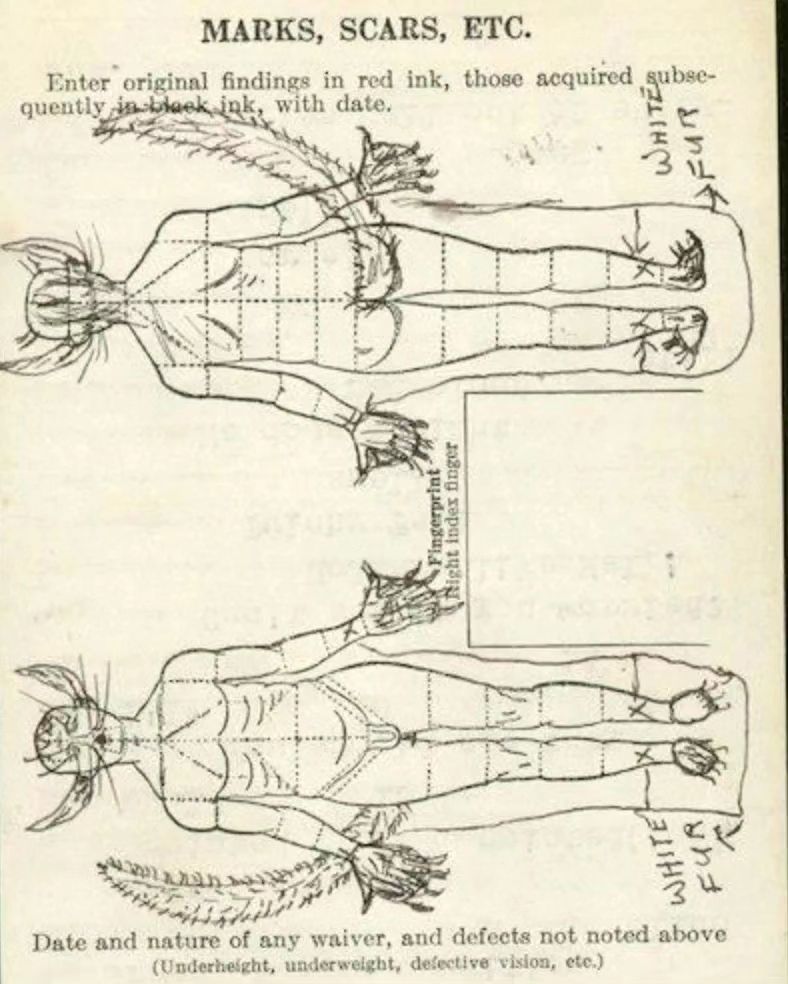 MARKS, SCARS, ETC.
Enter original findings in red ink, those acquired subse-
quently in black ink, with date.
WHITE
FUR
Fingerprint
Right index finger
WHITE
FUR
Date and nature of any waiver, and defects not noted above
(Underheight, underweight, defective vision, etc.)